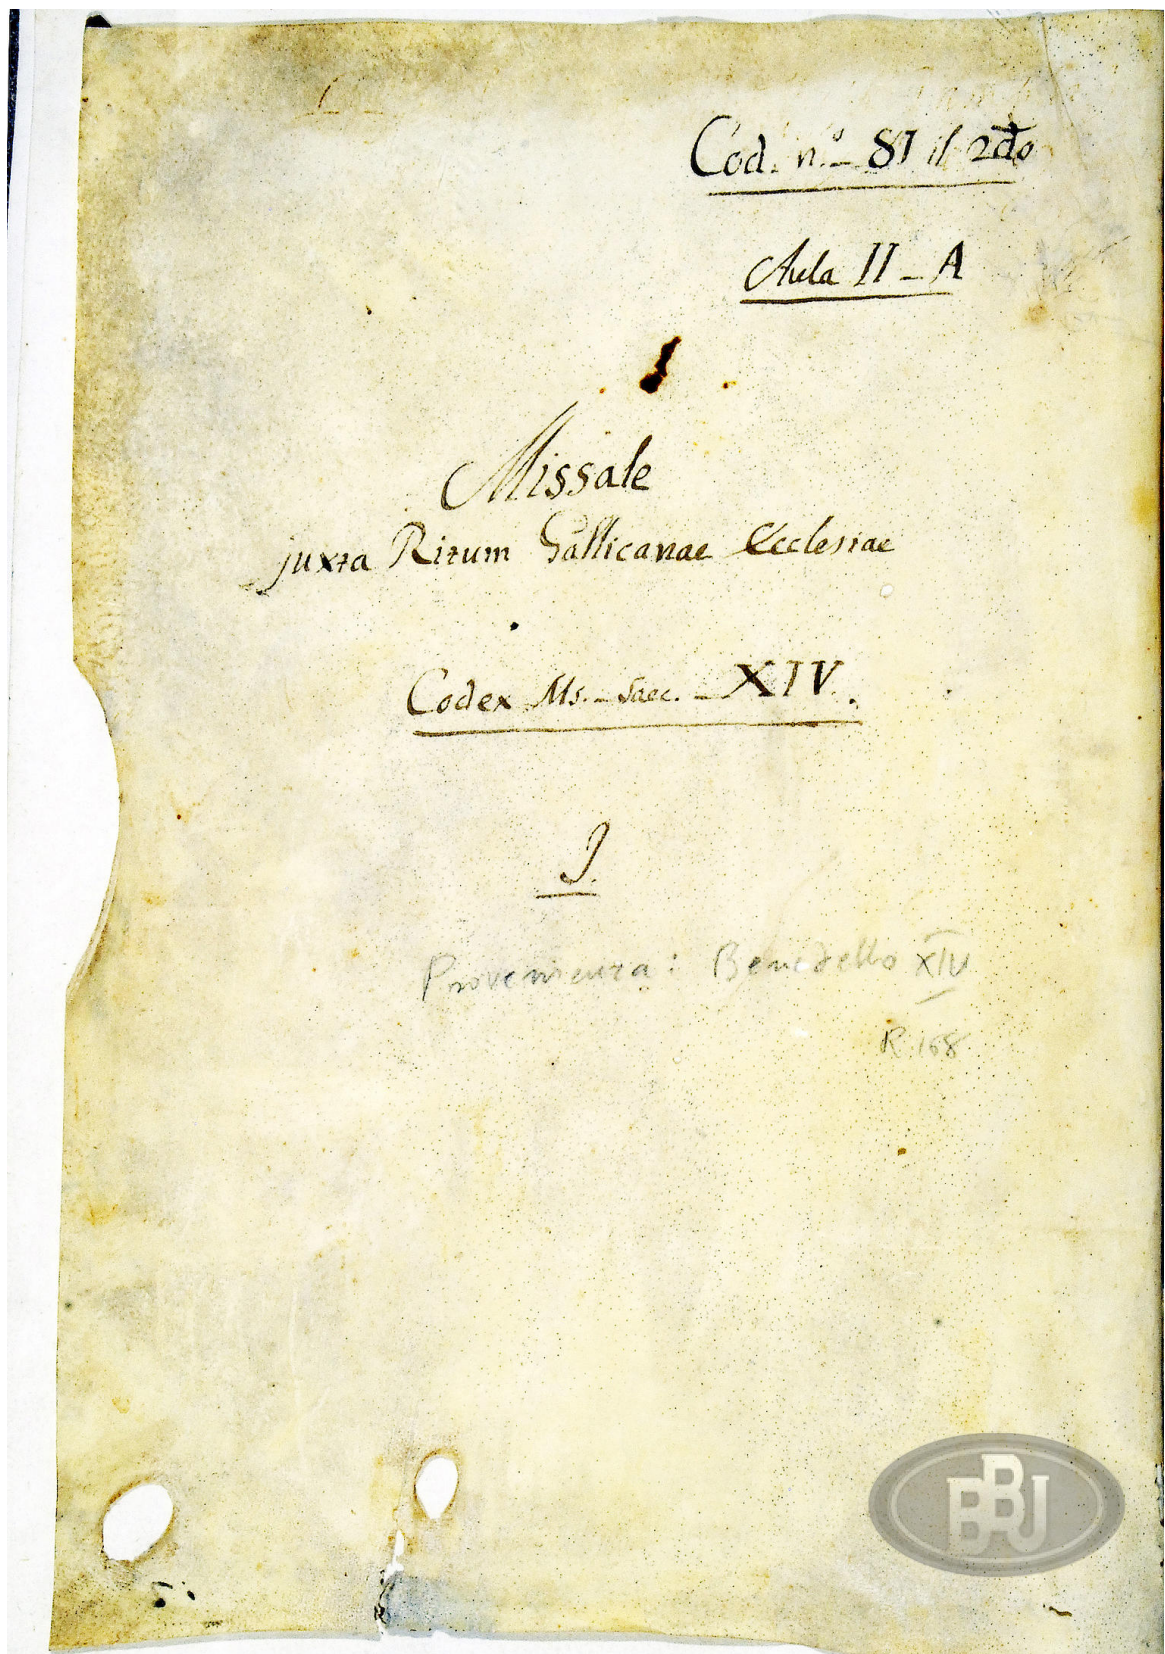 Cod. n.º - 81 il 2do
Aula II - A
Missale
juxta Ritum Gallicanae Ecclesiae
Codex Ms. - Saec. - XIV.
I.
Provenienza: Benedetto XIV
R. 168
BBJ